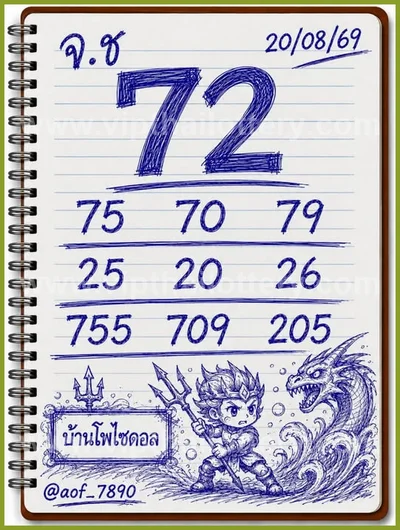 จ.ช 20/08/69
72
www.vipthailottery.com
75 70 79
25 20 26
www.vipthailottery.com
755 709 205
บ้านโพไซดอล
@aof_7890